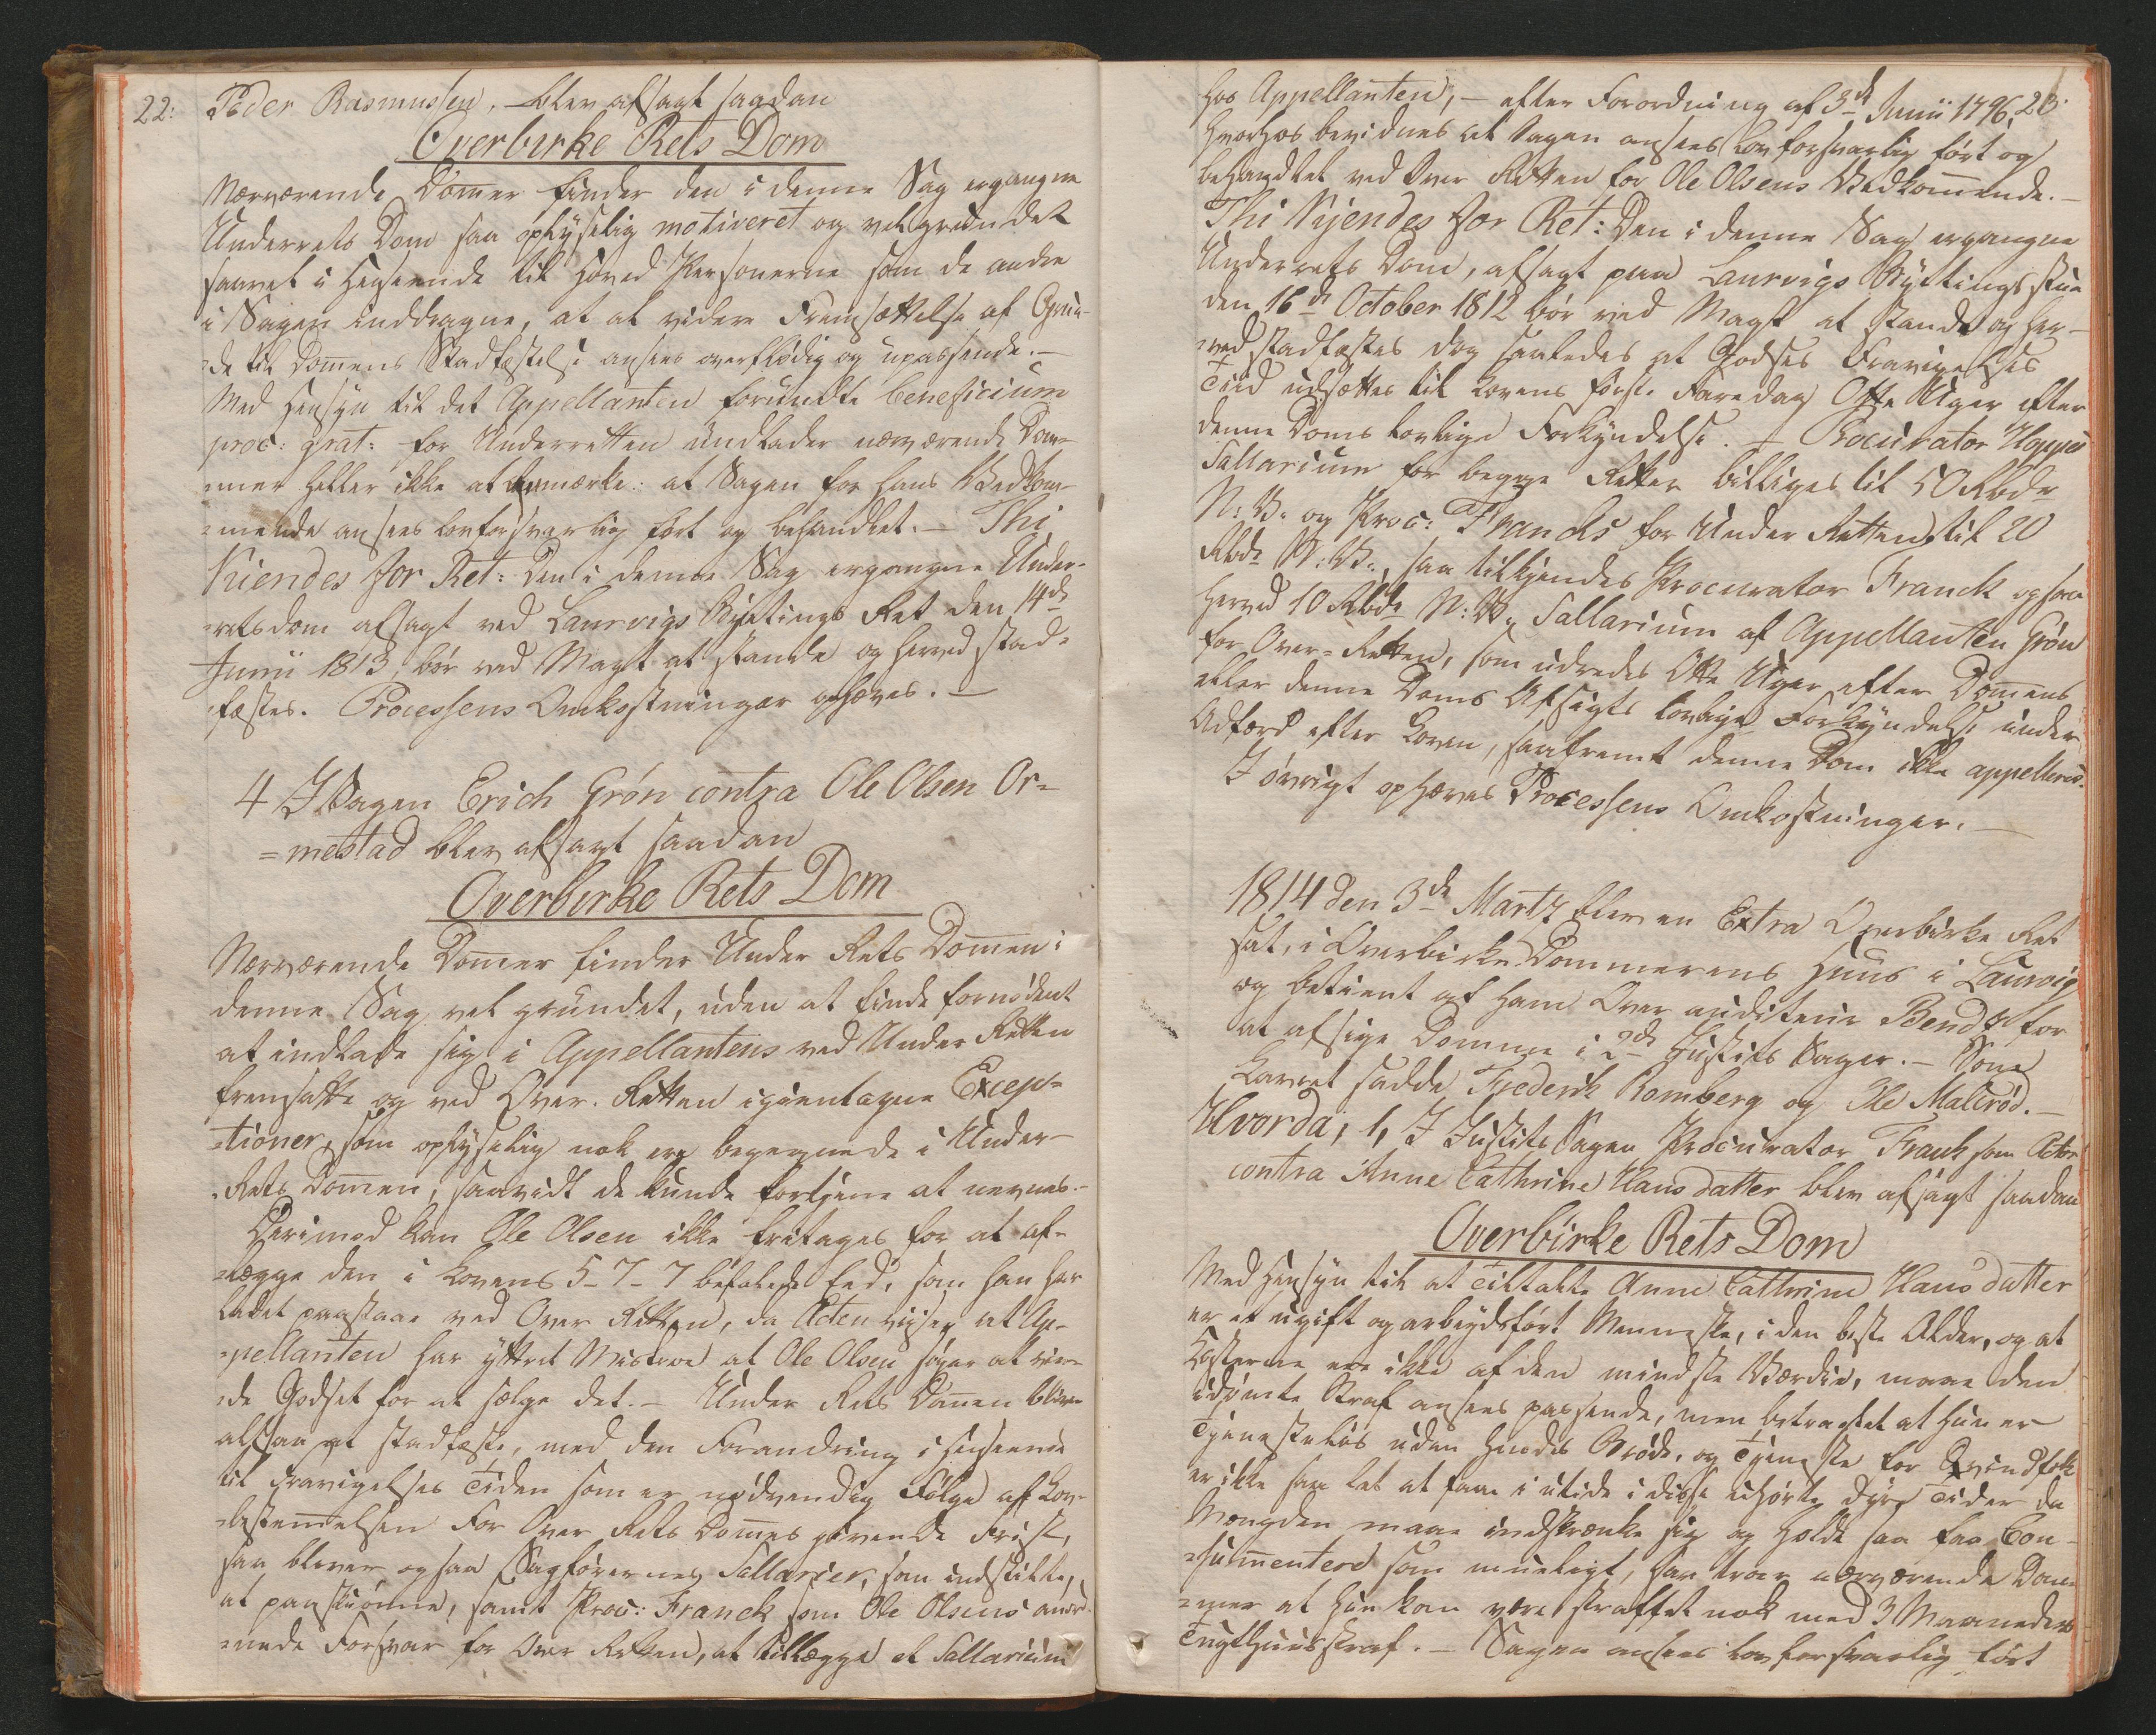 22:
Peder Rasmussen, blev afsagt saadan
Overbirke Rets Dom
Nærværende Dommer finder den i denne Sag ergangne
Underrets Dom saa oplyselig motiveret og velgrundet
saavel i Henseende til Hoved Personerne som de andre
i Sagen inddragne, at al videre Fremsættelse af Grun-
-de til Dommens Stadfæstelse ansees overflødig og upassende.-
Med Hensyn til det Appellanten forundte beneficium
proc: grat: for Underretten undlader nærværende Dom-
mer heller ikke at bemærke: at Sagen for hans Vedkom-
-mende ansees lovforsvarlig ført og behandlet.- Thi
Kiendes for Ret: Den i denne Sag ergangne Under-
-retsdom afsagt ved Laurvigs Byetings Ret den 14de
Junii 1813, bør ved Magt at stande og herved stad-
fæstes. Processens Omkostninger ophæves.-
4 I Sagen Erich Grøn contra Ole Olsen Or-
=mestad blev afsagt saadan
Overbirke Rets Dom
Nærværende Dommer finder Under Rets Dommen i
denne Sag vel grundet, uden at finde fornødent
at indlade sig i Appellantens ved Under Retten
fremsatte og ved Over-Retten igientagne Excep-
-tioner, som oplyselig nok ere begegnede i Under-
-Rets Dommen, saavidt de kunde fortjene at nevnes.-
Derimod kan Ole Olsen ikke fritages for at af-
-lægge den i Lovens 5-7-7 befalede Eed, som han har
ladet paastaae ved Over Retten, da Acten viiser at Ap-
-pellanten har yttret Mistroe at Ole Olsen søger at vin-
-de Godset for at sælge det.- Under Rets Dommen bliver
altsaa at stadfæste, med den Forandring i Henseende
til Fravigelses Tiden som er nødvendig Følge af Lov-
-bestemmelsen for Over Rets Dommes givende Frist,
saa bliver ogsaa Sagførernes Sallarier, som indstilte,
at paaskiønne, samt Proc: Franck som Ole Olsens anord-
-nede Forsvar for Over Retten, at tillægge et Sallarium
23.
hos Appellanten,- efter Forordning af 3de Junii 1796,
hvorhos bevidnes at Sagen ansees lovforsvarlig ført og
behandlet ved Over Retten for Ole Olsens Vedkommende.-
Thi Kjendes for Ret: Den i denne Sag ergangne
Underrets Dom, afsagt paa Laurvigs Byetingsstue
den 16de October 1812 bør ved Magt at stande og her-
-ved stadfæstes dog saaledes at Godsets Fravigelses
Tiid udsættes til Lovens første Faredag Otte Uger efter
denne Doms lovlige Forkyndelse.- Procurator
Sallarium for begge Retter billiges til 50 Rbdr
N: V: og Proc: Francks for Under Retten til 20
Rbdr N: V:, saa tilkjendes Procurator Franck ogsaa
herved 10 Rbdr N: V: Sallarium af Appellanten Grøn
for Over-Retten, som udredes Otte Uger efter Dommens
eller denne Doms Afsigts lovlige Forkyndelse under
Adfærd efter Loven, saafremt denne Dom ikke appelleres.
I øvrigt ophæves Processens Omkostninger.-
1814 den 3de Martz blev en Extra Overbirke Ret
sat, i Overbirke Dommerens Huus i Laurvig
og betient af ham Over auditeur Bendz for
at afsige Domme i 2de Justits Sager.- Som
Lavret sadde Frederik Romberg og Ole Malerød.-
Hvorda, 1, I Justits Sagen Procurator Frank som Actor
contra Anne Cathrine Hansdatter blev afsagt saadan
Overbirke Rets Dom
Med Hensyn til at Tiltalte Anne Cathrine Hansdatter
er et ugift og arbeydsført Menneske, i den beste Alder, og at
Kosterne ere ikke af den mindste Værdie, maae den
idømte Straf ansees passende, men betragtet at hun er
Tjenesteløs uden hendes Brøde, og Tjeneste for Qvindfolk
er ikke saa let at faae i utide i disse uhørte dyre Tider da
Mængden maae indskrænke sig og holde saa faa Con-
-summentere som mueligt, saa troer nærværende Dom-
-mer at hun kan være straffet nok med 3 Maaneders
Tugthuusstraf.- Sagen ansees lovforsvarlig ført